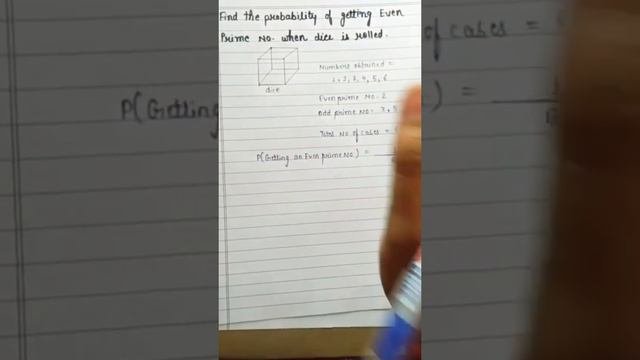 Find the probability of getting Even
Prime No. when dice is rolled.
Numbers obtained =
1, 2, 3, 4, 5, 6
dice
Even prime No. 2
Odd prime No. 3, 5
Total No of cases =
P(Getting an Even prime No) =
of cases =
P(Getting
) =